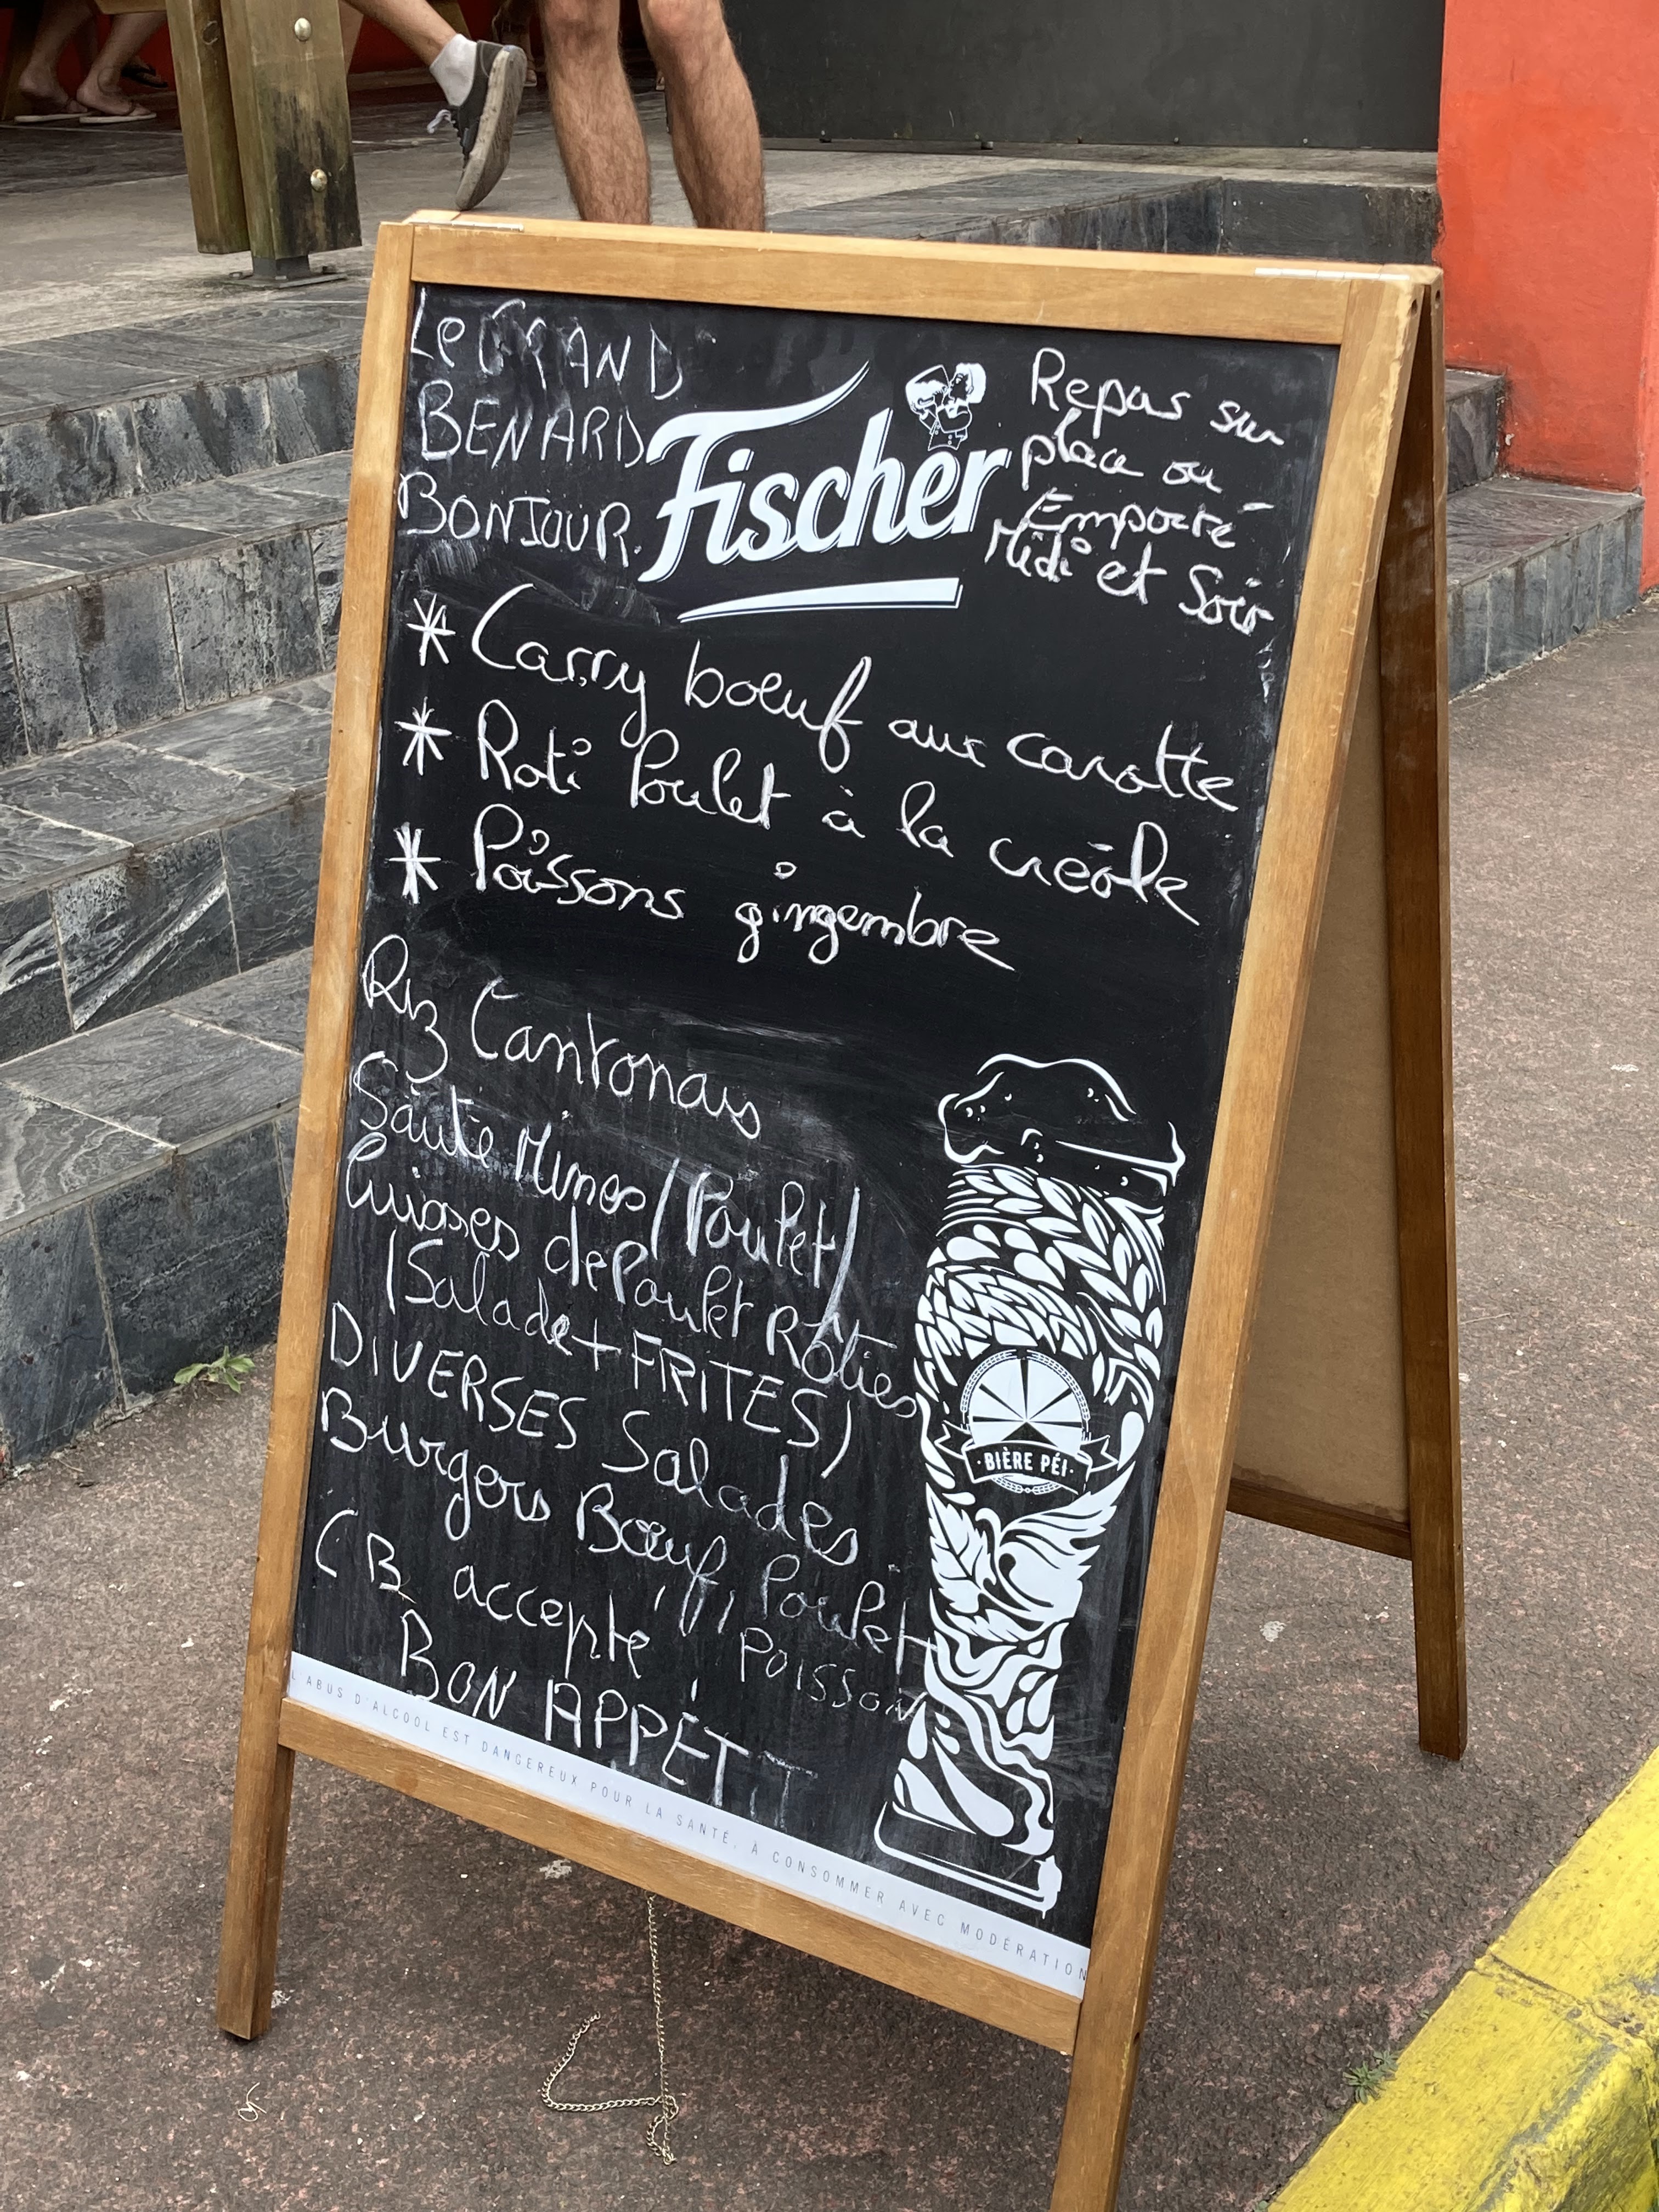 Le GRAND
BENARD
BONJOUR.
Fischer
Repas sur
place ou
Emporté
Midi et Soir
* Carry boeuf aux carotte
* Roti Poulet à la créole
* Poissons gingembre
Riz Cantonais
Sauté Mines/Poulet/
Cuisses de Poulet Rôties
(Salade + FRITES)
DIVERSES Salades
Burgers Bœuf, Poulet
POISSON
CB accepté
BON APPÉTIT
·BIÈRE PÉI·
L'ABUS D'ALCOOL EST DANGEREUX POUR LA SANTÉ. À CONSOMMER AVEC MODÉRATION